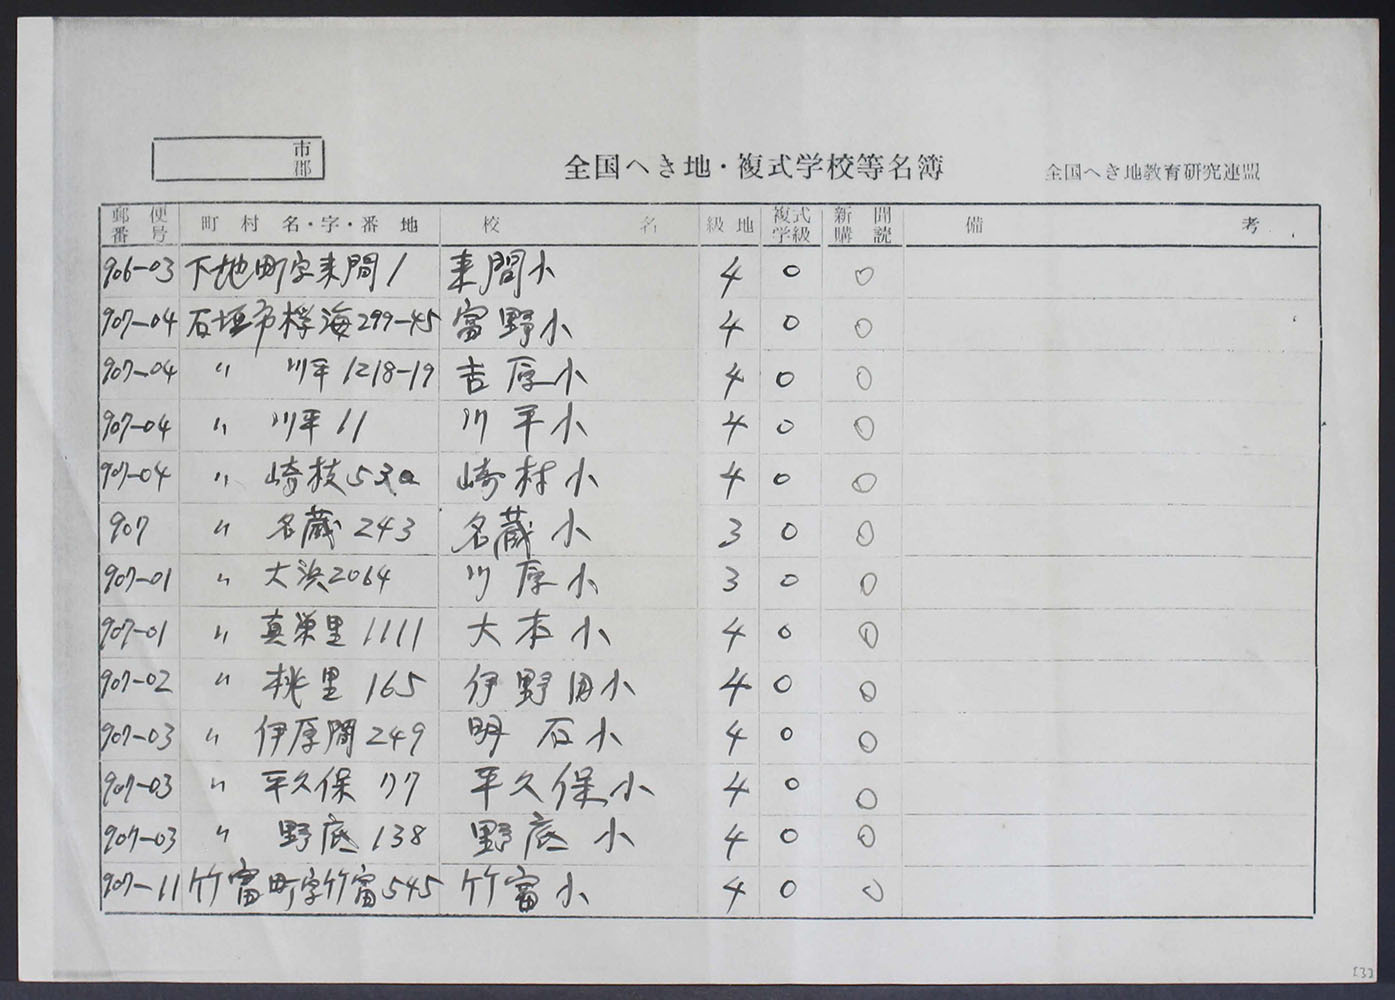 市
郡
全国へき地・複式学校等名簿 全国へき地教育研究連盟
郵便番号 町村名・字・番地 校名 級地 複式学級 新聞購読 備考
906-03 下地町字来間1 来間小 4 ○ ○
907-04 石垣市桴海299-45 富野小 4 ○ ○
907-04 〃 川平1218-19 吉原小 4 ○ ○
907-04 〃 川平11 川平小 4 ○ ○
907-04 〃 崎枝 崎村小 4 ○ ○
907 〃 名蔵243 名蔵小 3 ○ ○
907-01 〃 大浜2064 川原小 3 ○ ○
907-01 〃 真栄里1111 大本小 4 ○ ○
907-02 〃 桃里165 伊野田小 4 ○ ○
907-03 〃 伊原間249 明石小 4 ○ ○
907-03 〃 平久保77 平久保小 4 ○ ○
907-03 〃 野底138 野底小 4 ○ ○
907-11 竹富町字竹富545 竹富小 4 ○ ○
[3]